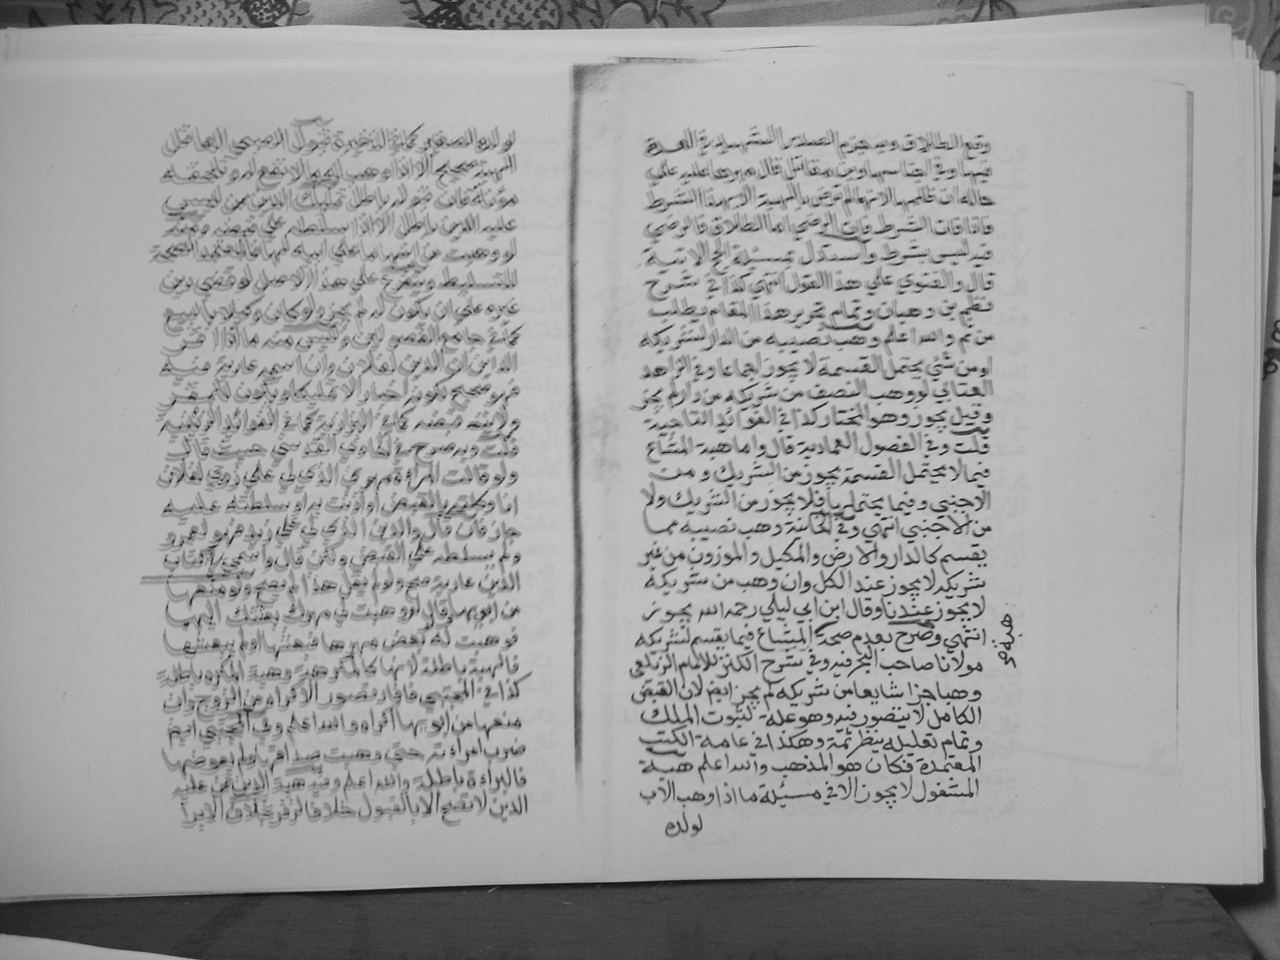 وقع الطلاق وبه جزم الصدر الشهيد في العدة
حاله ان قابلها لانها لم ترض بالهبة الا بهذا الشرط
فاذا فات الشرط فات الرضى اما الطلاق فالرضي
فيه ليس بشرط واستدل بمسئلة الحج الاتية
قال والفتوي علي هذا القول انتهي كذا في شرح
نظم بن وهبان وتمام تحرير هذا المقام يطلب
من ثم والله اعلم وهب نصيبه من الدار لشريكه
او من شئ يحتمل القسمة لا يجوز اجماعا وفي الزاهد
العتابي لو وهب النصف من شريكه من دار لم يجز
وقيل يجوز وهو المختار كذا في الفوائد التاجية
قلت وفي الفصول العمادية قال واما هبة المشاع
فيما لا يحتمل القسمة يجوز من الشريك ومن
الاجنبي وفيما يحتملها فلا يجوز من الشريك ولا
من الاجنبي انتهي وفي الخانية وهب نصيبه مما
يقسم كالدار والارض والمكيل والموزون من غير
شريكه لا يجوز عند الكل وان وهب من شريكه
لا يجوز عندنا وقال ابن ابي ليلي رحمه الله يجوز
انتهي وصرح بعدم صحة المشاع فيما يقسم لشريكه
مولانا صاحب البحر فيه وفي شرح الكنز للامام الزيلعي
وهبا جزا شايعا من شريكه لم يجز ايضا لان القبض
الكامل لا يتصور فيه وهو علة لثبوت الملك
وتمام تعليله ينظر ثمة وهكذا في عامة الكتب
المعتمدة فكان هو المذهب والله اعلم هبة
المشغول لا يجوز الا في مسئلة ما اذا وهب الاب
لولده
لولده الصغير كما في الذخيرة قبول الصبي
الهبة صحيح الا اذا وهب له ما لا نفع له وتلحقه
مؤنة فان قبوله باطل تمليك الدين من ليس
عليه الدين باطل الا اذا سلطه علي قبضه ومنه
لو وهبت من ابنها ما علي ابيه لها فالمعتمد الصحة
للتسليط ويتفرع علي هذا الاصل لو قضي دين
غيره علي ان يكون له لم يجز ولو كان وكيلا بالبيع
كما في جامع الفصولين وليس منه ما اذا اقر
الداين ان الدين لفلان وان اسمه عارية فيه
فهو صحيح لكونه اخبارا لا تمليكا ويكون للمقر
ولاية قبضه كما في البزازية كما في الفوائد الزينية
قلت وبه صرح في الحاوي القدسي حيث قال
ولو قالت المراة مهري الذي لي علي زوجي لفلان
جاز فان قال والدين الذي لي علي زيد فهو لعمرو
ولم يسلطه علي القبض ولكن قال واسمي في كتاب
الدين عارية صح ولو لم يقل هذا لم يصح ولو منعها
من ابويها وقال لو وهبت لي مهرك بعثتك اليها
فوهبت له بعض مهرها فبعثها او لم يبعثها
فالهبة باطلة لانها كالمكرهة وهبة المكره باطلة
كذا في المجتبي فافاد تصور الاكراه من الزوج وان
منعها من ابويها اكراه والله اعلم وفي المجتبي ايضا
ضرب امراءته حتي وهبت صداقها ولم يعوضها
فالبراءة باطلة والله اعلم وفيه هبة الدين ممن عليه
الدين لا تصح الا بالقبول خلافا لزفر بخلاف الابرا